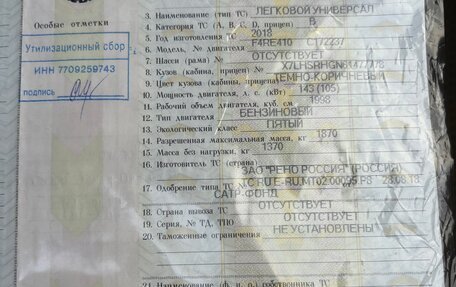 Особые отметки
Утилизационный сбор
ИНН 7709259743
подпись
3. Наименование (тип ТС) ЛЕГКОВОЙ УНИВЕРСАЛ
4. Категория ТС (А, В, С, D, прицеп) B
5. Год изготовления ТС 2018
6. Модель, № двигателя F4RE410 C172237
7. Шасси (рама) № ОТСУТСТВУЕТ
8. Кузов (кабина, прицеп) №
9. Цвет кузова (кабины, прицепа) ТЕМНО-КОРИЧНЕВЫЙ
10. Мощность двигателя, л. с. (кВт) 143 (105)
11. Рабочий объем двигателя, куб. см 1998
12. Тип двигателя БЕНЗИНОВЫЙ
13. Экологический класс ПЯТЫЙ
14. Разрешенная максимальная масса, кг 1870
15. Масса без нагрузки, кг 1370
16. Изготовитель ТС (страна) ЗАО "РЕНО РОССИЯ" (РОССИЯ)
17. Одобрение типа ТС №
САТР-ФОНД
18. Страна вывоза ТС ОТСУТСТВУЕТ
19. Серия, № ТД, ТПО ОТСУТСТВУЕТ
20. Таможенные ограничения НЕ УСТАНОВЛЕНЫ
21. Наименование (ф. и. о.) собственника ТС